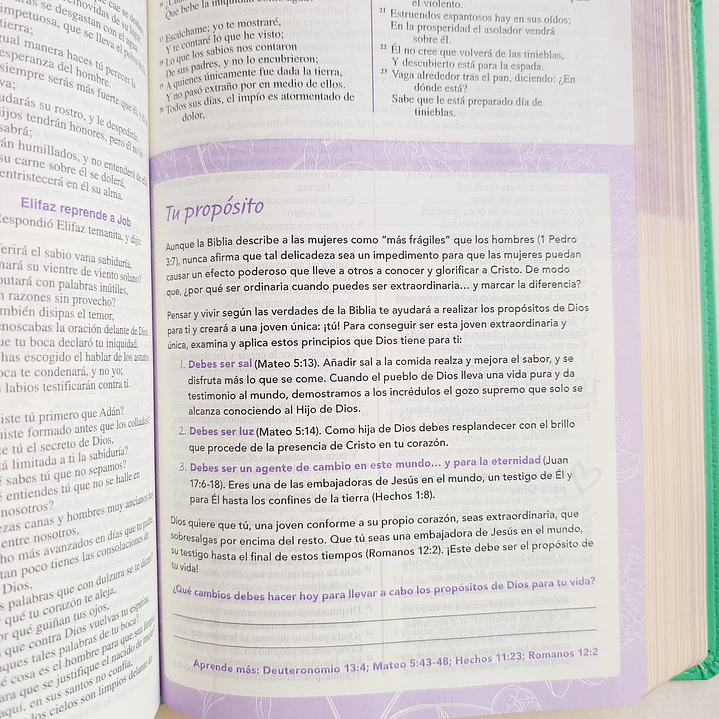 impetuosa, que se lleva el polvo de la
tierra;
igual manera haces tú perecer la
esperanza del hombre.
siempre serás más fuerte que él,
va;
udarás su rostro, y le despedirás.
hijos tendrán honores, pero él no
sabrá;
án humillados, y no entenderá de
su carne sobre él se dolerá,
entristecerá en él su alma.
Elifaz reprende a Job
Respondió Elifaz temanita, y dijo:
ferirá el sabio vana sabiduría,
nará su vientre de viento solano?
putará con palabras inútiles,
n razones sin provecho?
mbién disipas el temor,
enoscabas la oración delante de Dios.
ue tu boca declaró tu iniquidad,
has escogido el hablar de los astutos.
oca te condenará, y no yo;
labios testificarán contra ti.
iste tú primero que Adán?
uiste formado antes que los collados?
te tú el secreto de Dios,
tá limitada a ti la sabiduría?
sabes tú que no sepamos?
entiendes tú que no se halle en
nosotros?
ezas canas y hombres muy ancianos hay
entre nosotros,
ho más avanzados en días que tu padre.
tan poco tienes las consolaciones de
Dios,
s palabras que con dulzura se te dicen?
qué tu corazón te aleja,
or qué guiñan tus ojos,
que contra Dios vuelvas tu espíritu,
ques tales palabras de tu boca?
cosa es el hombre para que sea limpio,
ara que se justifique el nacido de mujer?
aquí, en sus santos no confía,
los cielos son limpios delante de
Que bebe la iniquidad como agua?
17 Escúchame; yo te mostraré,
Y te contaré lo que he visto;
18 Lo que los sabios nos contaron
De sus padres, y no lo encubrieron;
19 A quienes únicamente fue dada la tierra,
Y no pasó extraño por en medio de ellos.
20 Todos sus días, el impío es atormentado de
dolor,
el violento.
21 Estruendos espantosos hay en sus oídos;
En la prosperidad el asolador vendrá
sobre él.
22 Él no cree que volverá de las tinieblas,
Y descubierto está para la espada.
23 Vaga alrededor tras el pan, diciendo: ¿En
dónde está?
Sabe que le está preparado día de
tinieblas.
Tu propósito
Aunque la Biblia describe a las mujeres como “más frágiles” que los hombres (1 Pedro
3:7), nunca afirma que tal delicadeza sea un impedimento para que las mujeres puedan
causar un efecto poderoso que lleve a otros a conocer y glorificar a Cristo. De modo
que, ¿por qué ser ordinaria cuando puedes ser extraordinaria… y marcar la diferencia?
Pensar y vivir según las verdades de la Biblia te ayudará a realizar los propósitos de Dios
para ti y creará a una joven única: ¡tú! Para conseguir ser esta joven extraordinaria y
única, examina y aplica estos principios que Dios tiene para ti:
1. Debes ser sal (Mateo 5:13). Añadir sal a la comida realza y mejora el sabor, y se
disfruta más lo que se come. Cuando el pueblo de Dios lleva una vida pura y da
testimonio al mundo, demostramos a los incrédulos el gozo supremo que solo se
alcanza conociendo al Hijo de Dios.
2. Debes ser luz (Mateo 5:14). Como hija de Dios debes resplandecer con el brillo
que procede de la presencia de Cristo en tu corazón.
3. Debes ser un agente de cambio en este mundo… y para la eternidad (Juan
17:6-18). Eres una de las embajadoras de Jesús en el mundo, un testigo de Él y
para Él hasta los confines de la tierra (Hechos 1:8).
Dios quiere que tú, una joven conforme a su propio corazón, seas extraordinaria, que
sobresalgas por encima del resto. Que tú seas una embajadora de Jesús en el mundo,
su testigo hasta el final de estos tiempos (Romanos 12:2). ¡Este debe ser el propósito de
tu vida!
¿Qué cambios debes hacer hoy para llevar a cabo los propósitos de Dios para tu vida?
Aprende más: Deuteronomio 13:4; Mateo 5:43-48; Hechos 11:23; Romanos 12:2